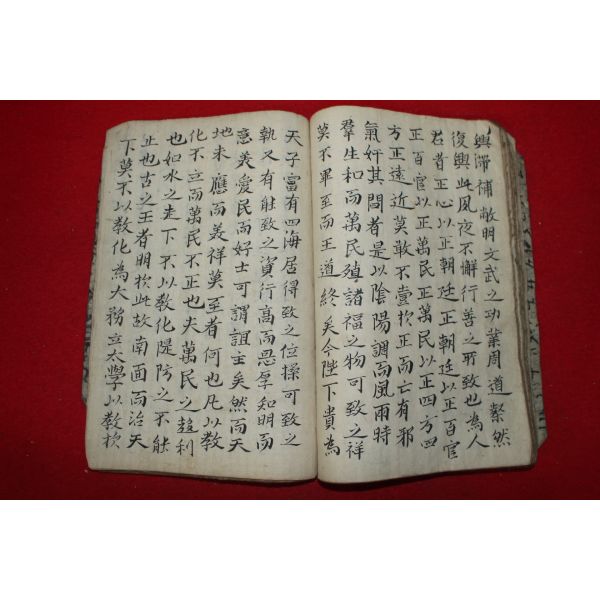 興滯補敝明文武之功業周道粲然
復興此夙夜不懈行善之所致也為人
君者正心以正朝廷正朝廷以正百官
正百官以正萬民正萬民以正四方四
方正遠近莫敢不壹扵正而亡有邪
氣奸其間者是以陰陽調而風雨時
羣生和而萬民殖諸福之物可致之祥
莫不畢至而王道終矣今陛下貴為
天子富有四海居得致之位操可致之
執又有能致之資行高而恩厚知明而
意美愛民而好士可謂誼主矣然而天
地未應而美祥莫至者何也凡以教
化不立而萬民不正也夫萬民之趍利
也如水之走下不以教化隄防之不能
止也古之王者明扵此故南面而治天
下莫不以教化為大務立太學以教扵